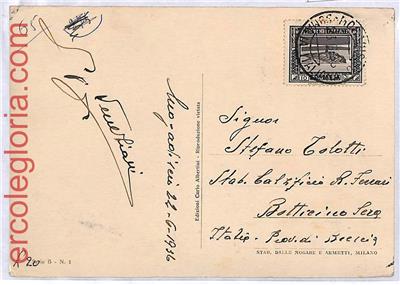 ercolegloria.com
Venetiani
Mogadiscio 22-6-1936
Edizioni Carlo Albertini - Riproduzione vietata
Signor
Stefano Tolotti
Stab. Calzificio R. Ferrari
Botticino Sera
Italia - Prov. di Brescia
STAB. DALLE NOGARE E ARMETTI, MILANO
B - N. 1
20